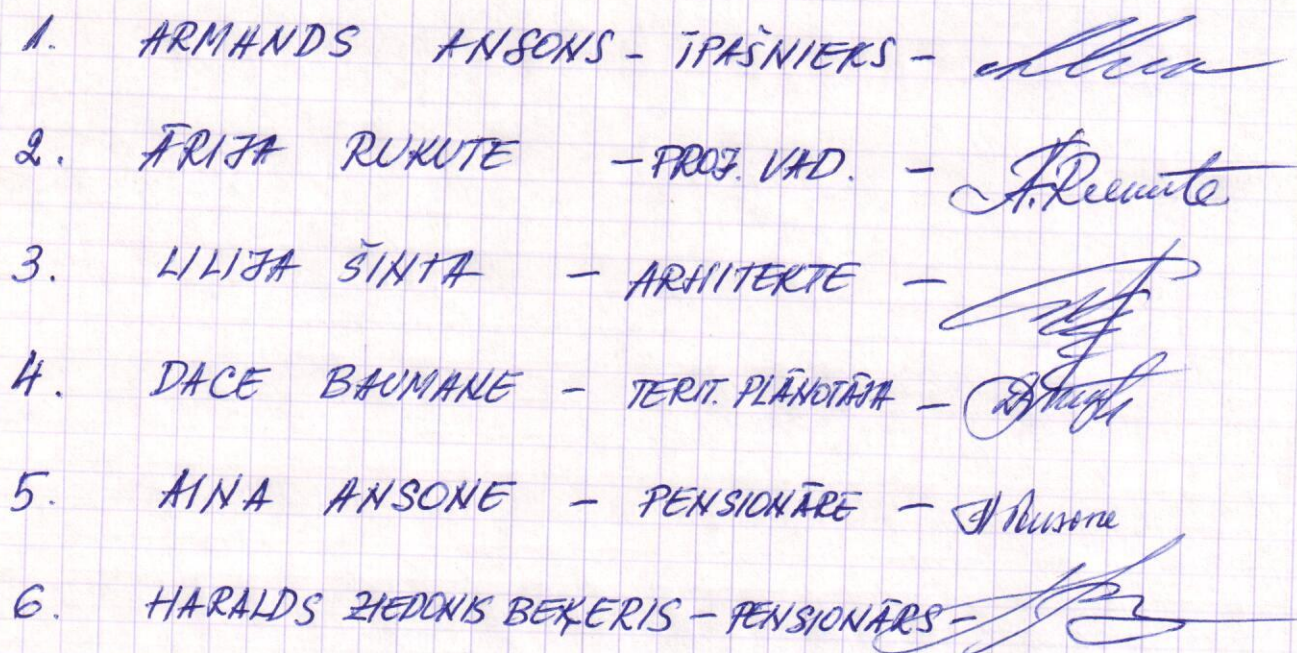 1. ARMANDS ANSONS - ĪPAŠNIEKS -
2. ĀRIJA RUKUTE - PROJ. VAD. - A.Rukute
3. LILIJA ŠINTA - ARHITEKTE -
4. DACE BAUMANE - TERIT. PLĀNOTĀJA -
5. AINA ANSONE - PENSIONĀRE - A Ansone
6. HARALDS ZIEDONIS BEĶERIS - PENSIONĀRS -